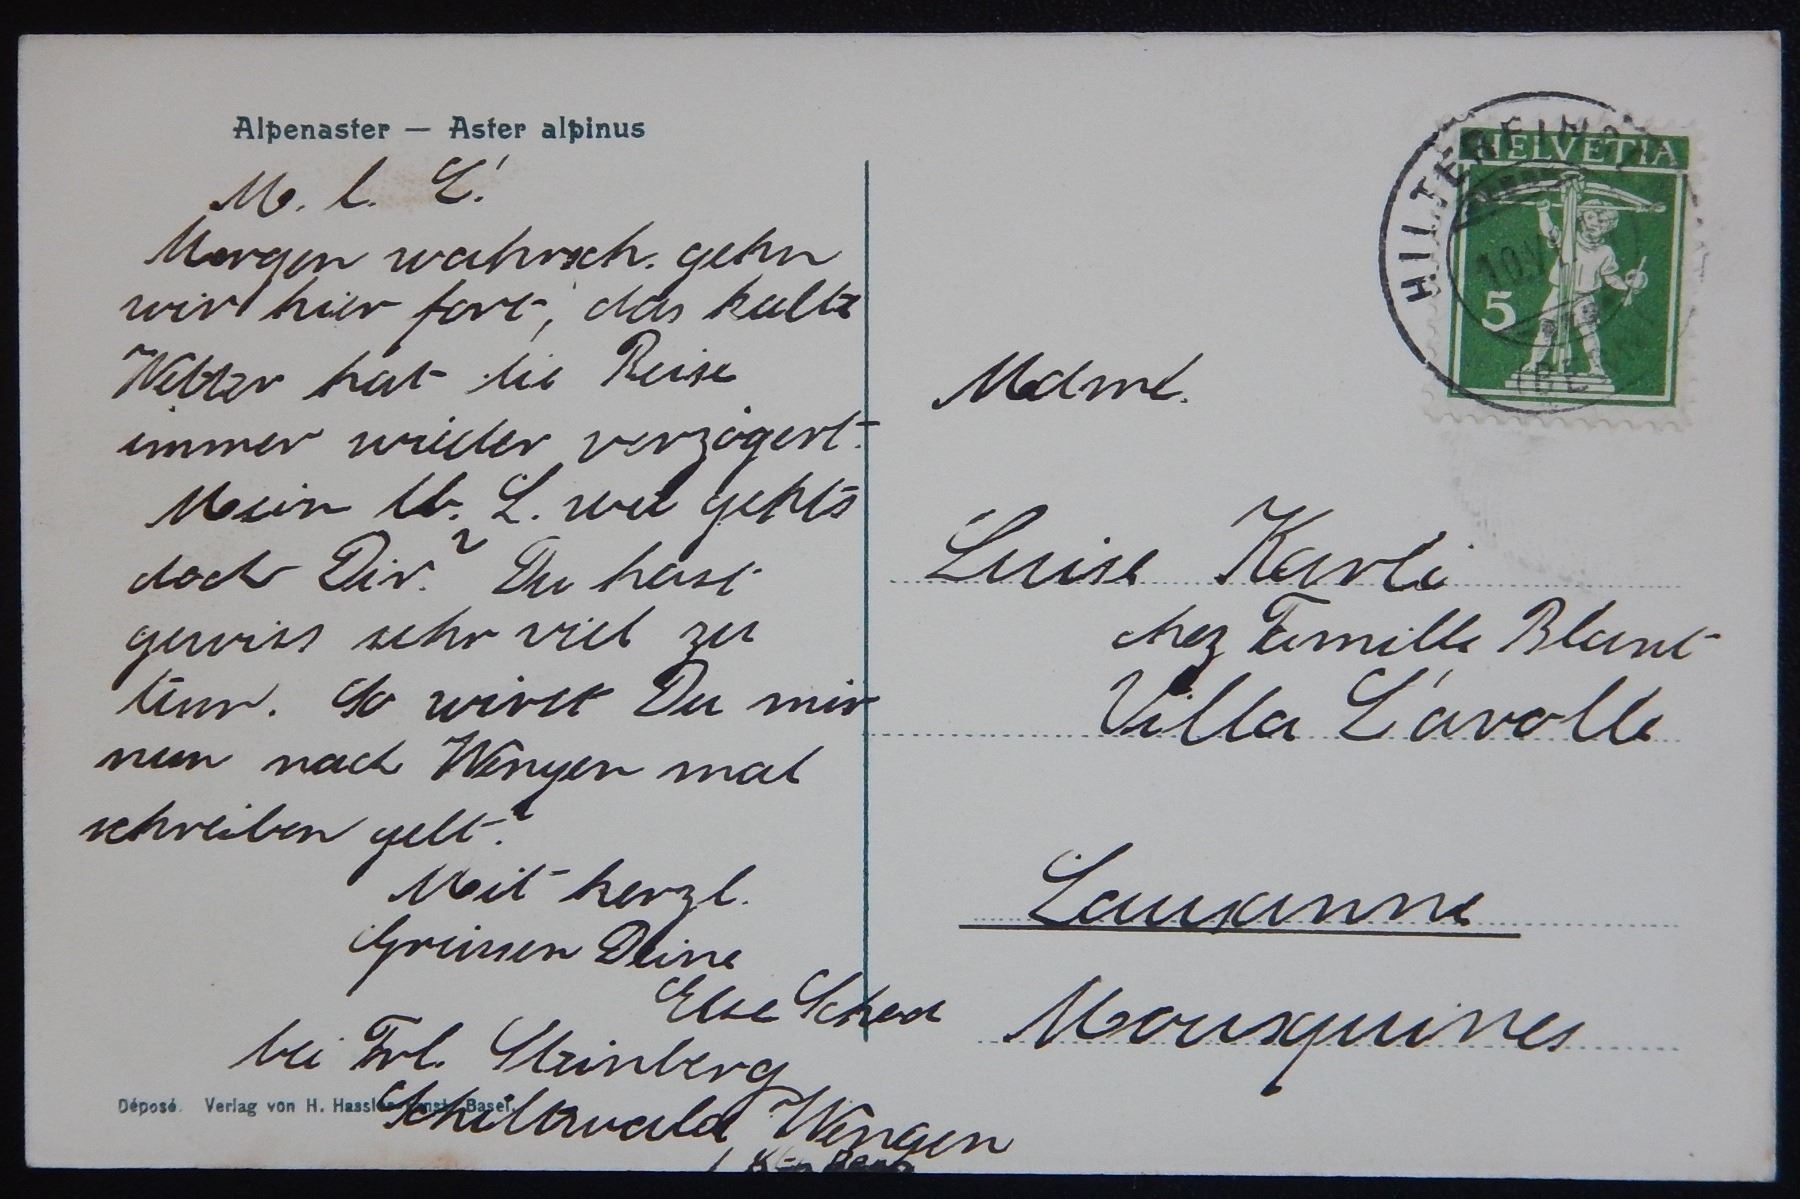 Alpenaster — Aster alpinus
M. l. L!
Morgen wahrsch. gehn
wir hier fort, das kalte
Wetter hat die Reise
immer wieder verzögert.
Mein lb. L. wie geht's
doch Dir? Du hast
gewiss sehr viel zu
tun. So wirst Du mir
nun nach Wengen mal
schreiben gelt?
Mit herzl.
Grüssen Deine
Else Sched
bei Frl. Steinberg
Schiltwald Wengen
Déposé. Verlag von H. Hassler Basel.
HELVETIA
5
HILTERFINGEN
10.VI
(BERN)
Mdme.
Luise Karli
chez Famille Blanc
Villa L'avolle
Lausanne
Mousquines